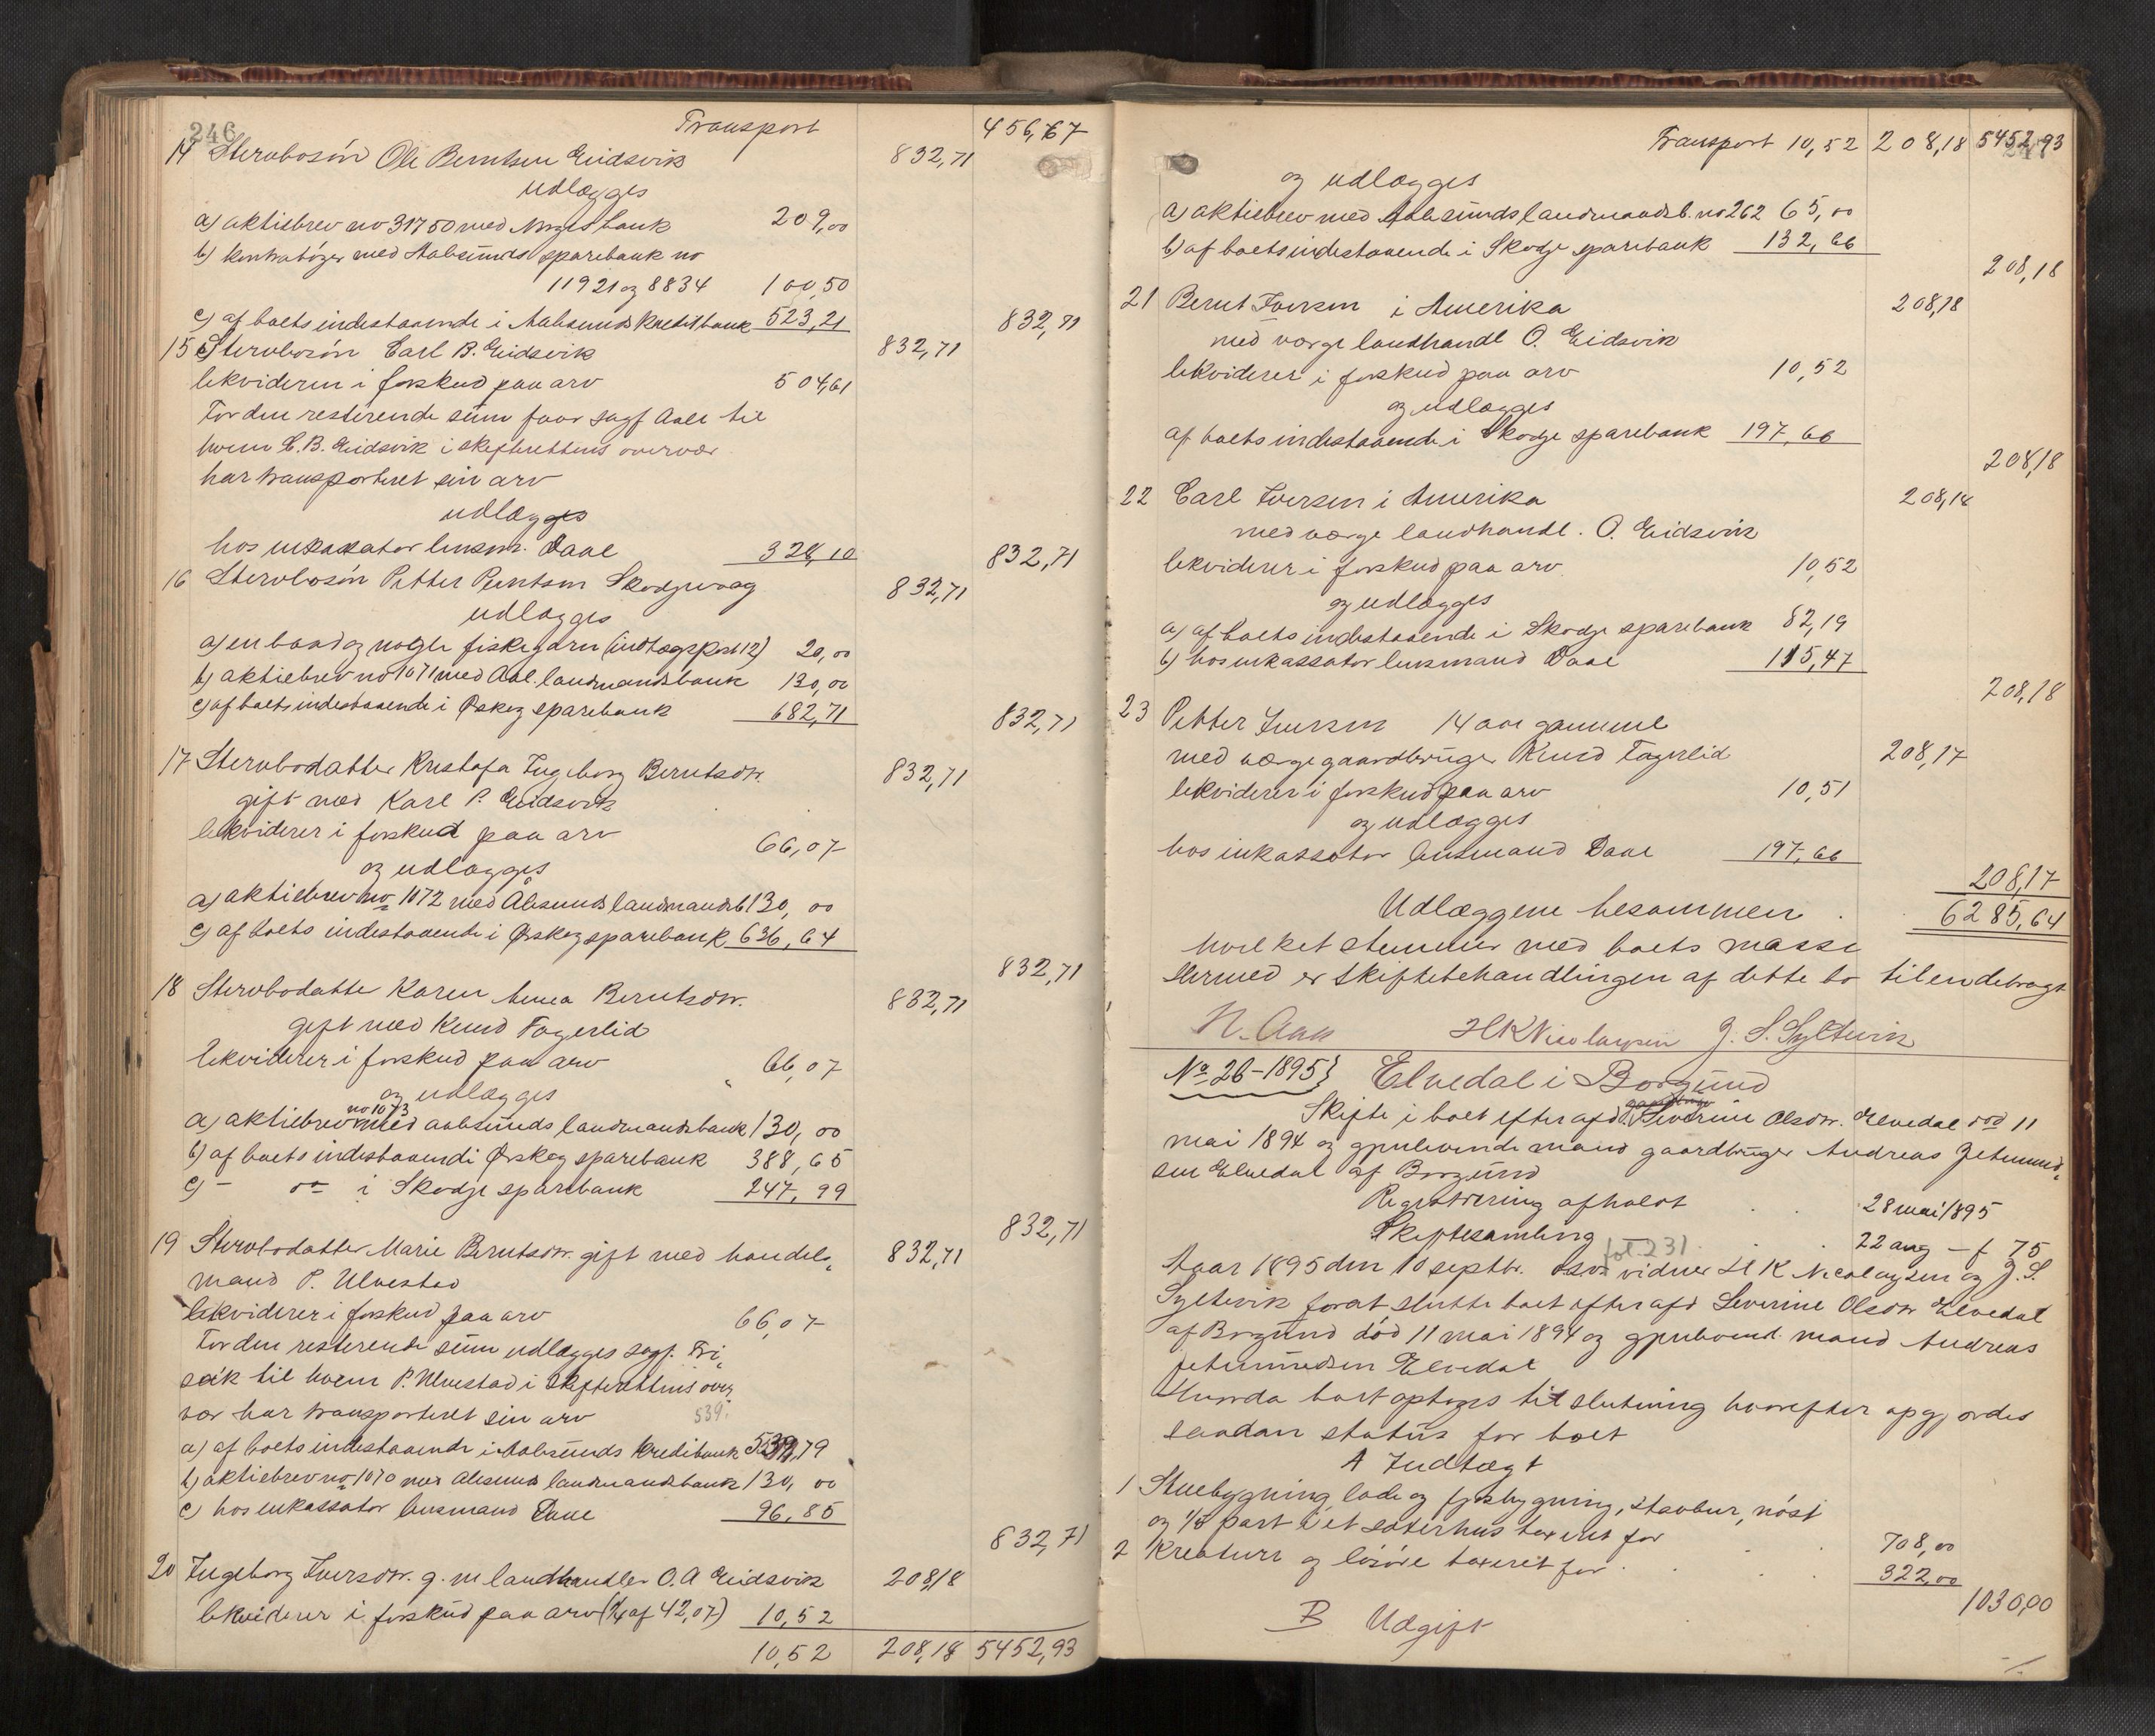 246
Transport 456,67
14 Stervbosön Ole Berntsen Eidsvik 832,71
udlægges
a) aktiebrev no 31750 med Norges bank 209,00
b) kontrabøger med Aalesunds sparebank no
11921 og 8834 100,50
c) af boets indestaaende i Aalesunds Kreditbank 523,21 832,71
15 Stervbosön Carl B. Eidsvik 832,71
likviderer i forskud paa arv 504,61
For den resterende sum faar sagf Aale til
hvem C. B. Eidsvik i skifterettens overvær
har transporteret sin arv
udlægges
hos inkassator lensm. Daae 328,10 832,71
16 Stervbosön Petter Berntsen Skodjevaag 832,71
udlægges
a) en baad og nogle fiskegarn (indtægtspost 12) 20,00
b) aktiebrev no 1071 med Aal. landmandsbank 130,00
c) af boets indestaaende i Ørskog sparebank 682,71 832,71
17 Stervbodatter Kristofa Ingeborg Berntsdtr. 832,71
gift med Karl P. Eidsvik
likviderer i forskud paa arv 66,07
og udlægges
a) aktiebrev no 1072 med Ålesunds landmandsb 130,00
c) af boets indestaaende i Ørskog sparebank 636,64
832,71
18 Stervbodatte Karen Anna Berntsdtr. 832,71
gift med Knud Fagerlid
likviderer i forskud paa arv 66,07
og udlægges
a) aktiebrev no 1073 med aalesunds landmandsbank 130,00
b) af boets indestaaendi Ørskog sparebank 388,65
c) - do i Skodje sparebank 247,99
832,71
19 Stervbodatter Marie Berntsdtr. gift med handels- 832,71
mand P. Ulvestad
likviderer i forskud paa arv 66,07
For den resterende sum udlægges sagf. Fri-
sak til hvem P. Ulvestad i skifterettens over-
vær har transporteret sin arv 539.
a) af boets indestaaende i Aalesunds Kreditbank 539,79
b) aktiebrev no 1070 med Alesund landmandsbank 130,00
c) hos inkassator lensmand Daae 96,85
832,71
20 Ingeborg Iversdtr. g. m landhandler O. A Eidsvik 208,18
likviderer i forskud paa arv (¼ af 42,07) 10,52
10,52 208,18 5452,93
Transport 10,52 208,18 5452,93
247
og udlægges
a) aktiebrev med Aalesunds landmandsb. no 262 65,00
b) af boets indestaaende i Skodje sparebank 132,66
208,18
21 Bernt Iversen i Amerika 208,18
med værge landhandl O. Eidsvik
likviderer i forskud paa arv 10,52
og udlægges
af boets indestaaende i Skodje sparebank 197,66
208,18
22 Carl Iversen i Amerika 208,18
med værge landhandl. O. Eidsvik
likviderer i forskud paa arv 10,52
og udlægges
a) af boets indestaaende i Skodje sparebank 82,19
b) hos inkassator lensmand Daae 115,47
208,18
23 Petter Iversen 14 aar gammel
med værge gaardbruger Knud Fagerlid 208,17
likviderer i forskud paa arv 10,51
og udlægges
hos inkassator lensmand Daae 197,66
208,17
Udlæggene tilsammen . 6285,64
hvilket stemmer med boets masse
Hermed er skiftebehandlingen af dette bo tilendebragt
N. Aas HKNicolaysen J. S. Syltevik
No 26-1895} Elvedal i Borgund
Skifte i boet efter afd. Severine Olsdtr. Elvedal död 11
mai 1894 og gjenlevende mand gaardbruger Andreas Jetmund-
sen Elvedal af Borgund
Registrering afholdt . . 28 mai 1895
Skiftesamling . 22 aug - f 75
fol. 231
Aaar 1895 den 10 septbr. osv. vidner H K Nicolaysen og J. S.
Syltevik forat slutte boet efter afd Severine Olsdtr Elvedal
af Borgund död 11 mai 1894 og gjenlevend. mand Andreas
Jetmundsen Elvedal
Hvorda boet optoges til slutning hvorefter opgjordes
saadan status for boet
A Indtægt
1 Stuebygning, lade og fjøsbygning, stavbur, nöst
og 1/3 part i et sæterhus taxeret for . . 708,00
2 Kreaturer og lösöre taxeret for . . . 322,00
1030,00
B Udgift